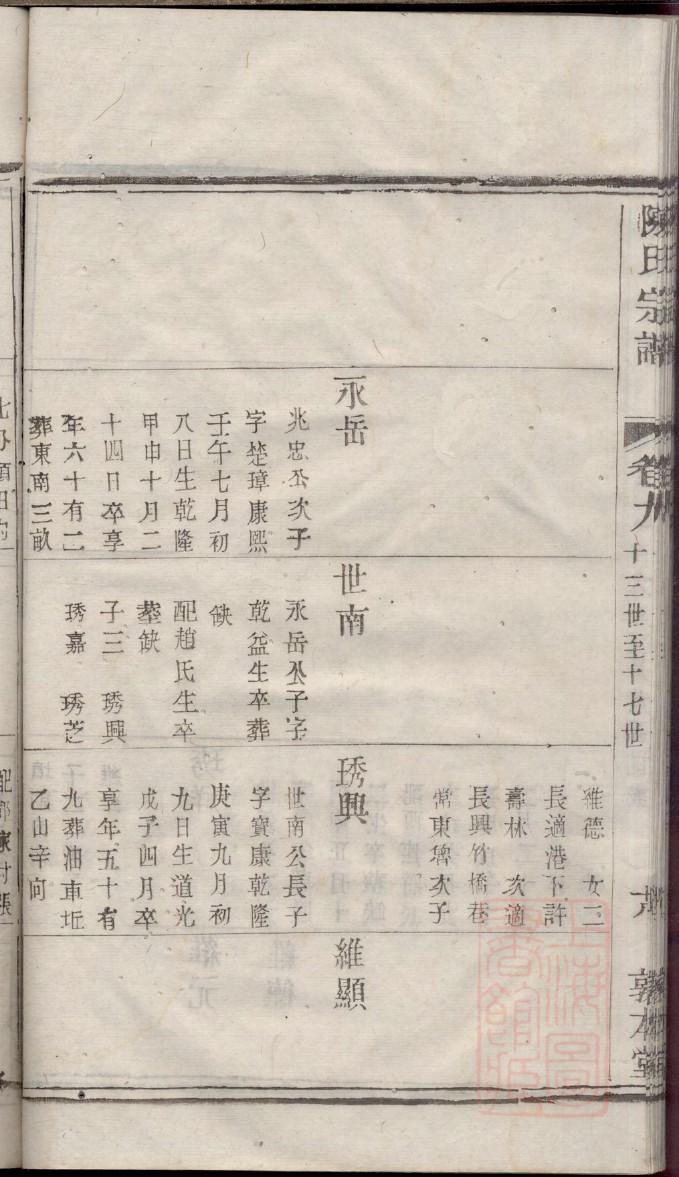 陳氏宗譜
卷九
十三世至十七世
敦本堂
永岳
兆忠公次子
字楚璋康熙
壬午七月初
八日生乾隆
甲申十月二
十四日卒享
年六十有二
葬東南三畝
世南
永岳公子字
乾益生卒葬
缺
配趙氏生卒
塟缺
子三 琇興
琇嘉 琇芝
維德 女二
長適港下許
壽林 次適
長興竹橋巷
常東魯次子
琇興
世南公長子
字寶康乾隆
庚寅九月初
九日生道光
戊子四月卒
享年五十有
九葬油車坵
乙山辛向
維顯
上海圖書館藏